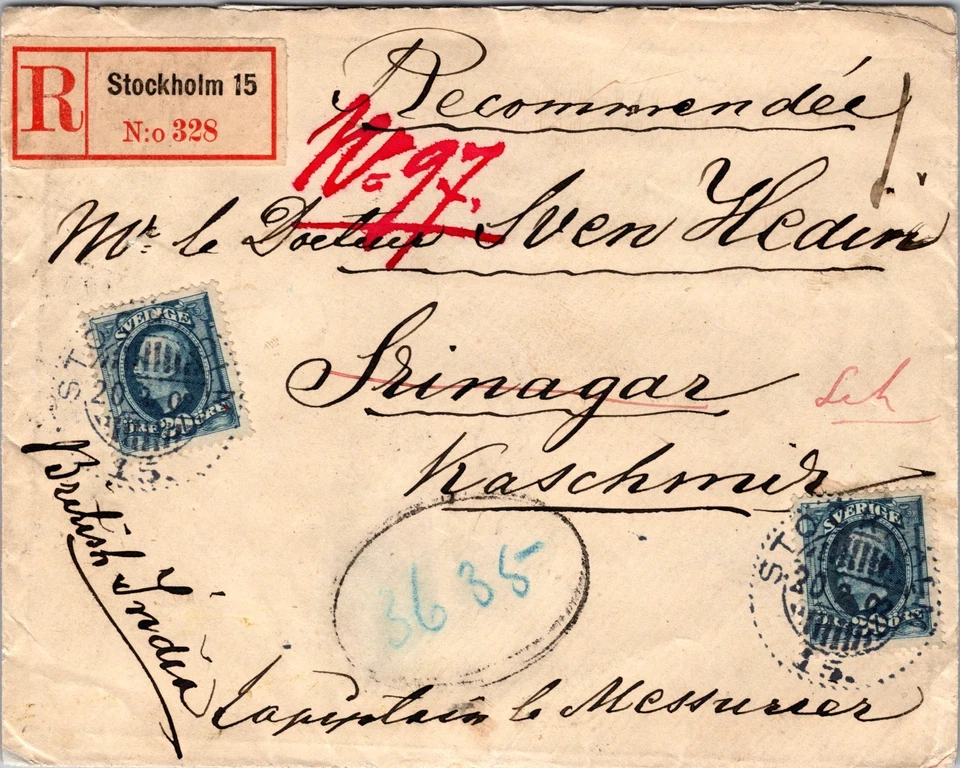 R
Stockholm 15
N:o 328
Recommendée
No 97.
Mr. le Docteur Sven Hedin
Srinagar
Leh
Kaschmir
SVERIGE
20 ÖRE
15.
British India
3635
SVERIGE
20 ÖRE
15.
Capiptain le Messurier